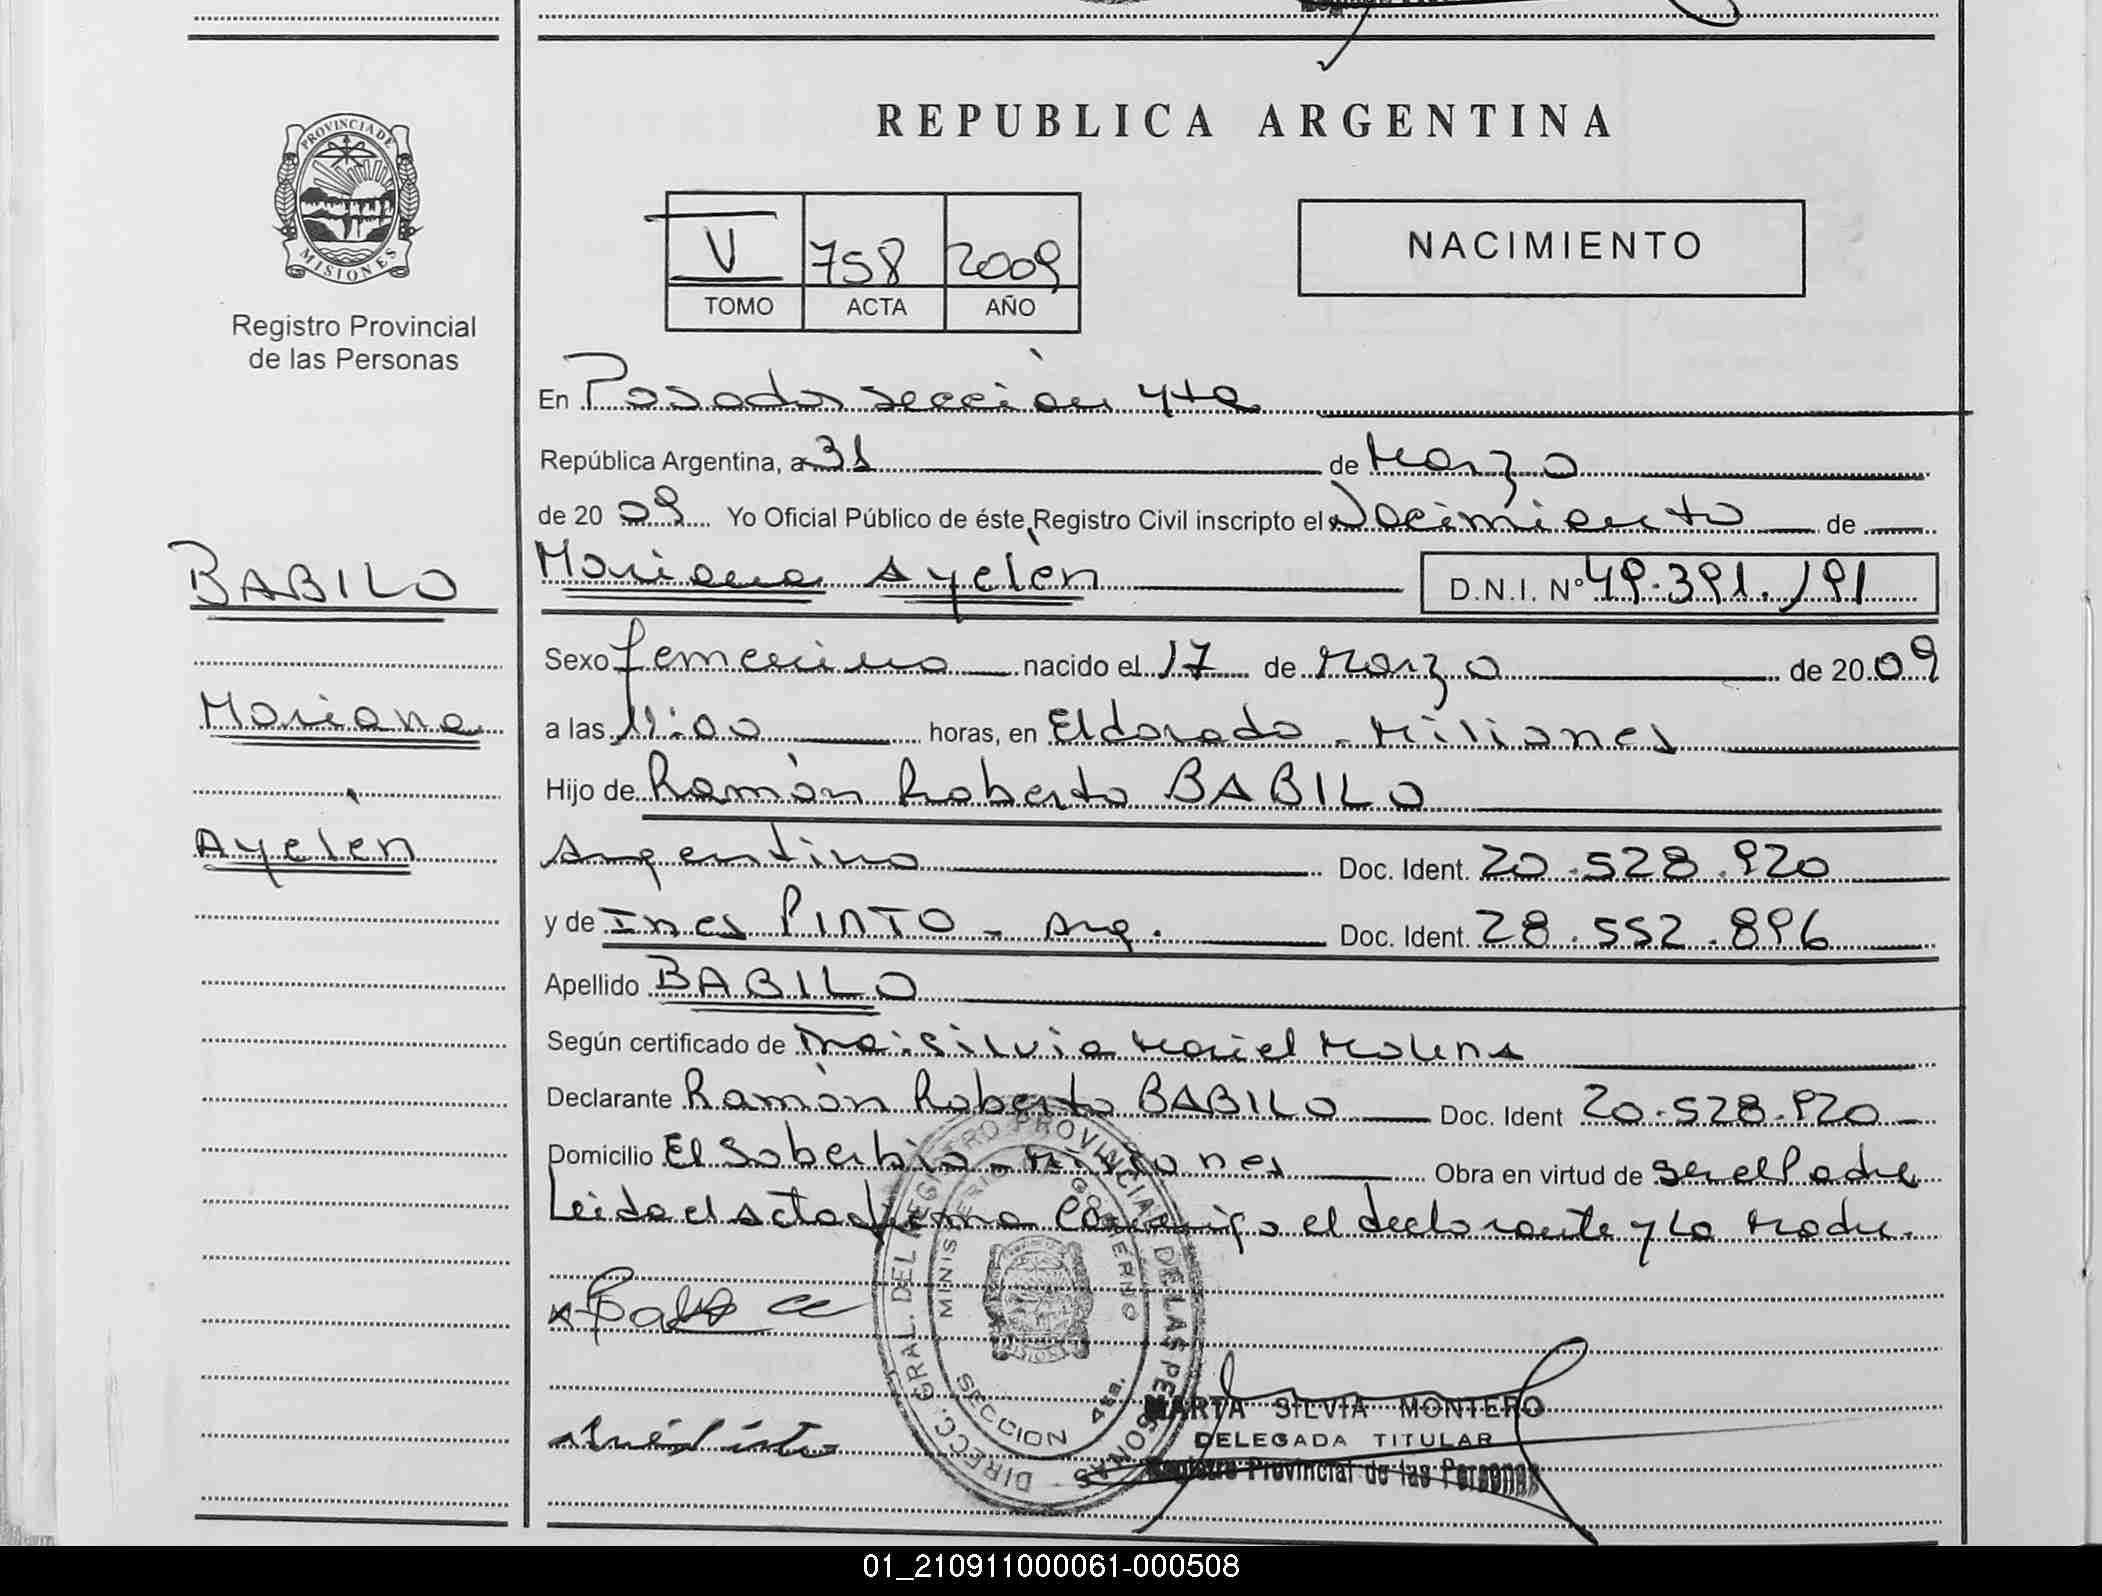 REPUBLICA ARGENTINA
PROVINCIA DE
MISIONES
Registro Provincial
de las Personas
V 758 2009
TOMO ACTA AÑO
NACIMIENTO
En Posadas sección 4ta
República Argentina, a 31 de Marzo
de 2009 Yo Oficial Público de éste Registro Civil inscripto el Nacimiento de
BABILO
Mariana Ayelén D.N.I. Nº 49.391.191
Sexo femenino nacido el 17 de Marzo de 2009
Mariana
a las 11:00 horas, en Eldorado - Misiones
Hijo de Ramón Roberto BABILO
Ayelén
Argentino Doc. Ident. 20.528.920
y de Ines PINTO - Arg. Doc. Ident. 28.552.896
Apellido BABILO
Según certificado de Dra. Silvia Mariel Molina
Declarante Ramón Roberto BABILO Doc. Ident 20.528.920
Domicilio El Soberbio - Misiones Obra en virtud de ser el Padre
Leida el acta firma conmigo el declarante y la Madre.
DIRECC. GRAL. DEL REGISTRO PROVINCIAL DE LAS PERSONAS
MINISTERIO GOBIERNO
SECCION 4ta.
MARTA SILVIA MONTERO
DELEGADA TITULAR
Registro Provincial de las Personas
01_210911000061-000508